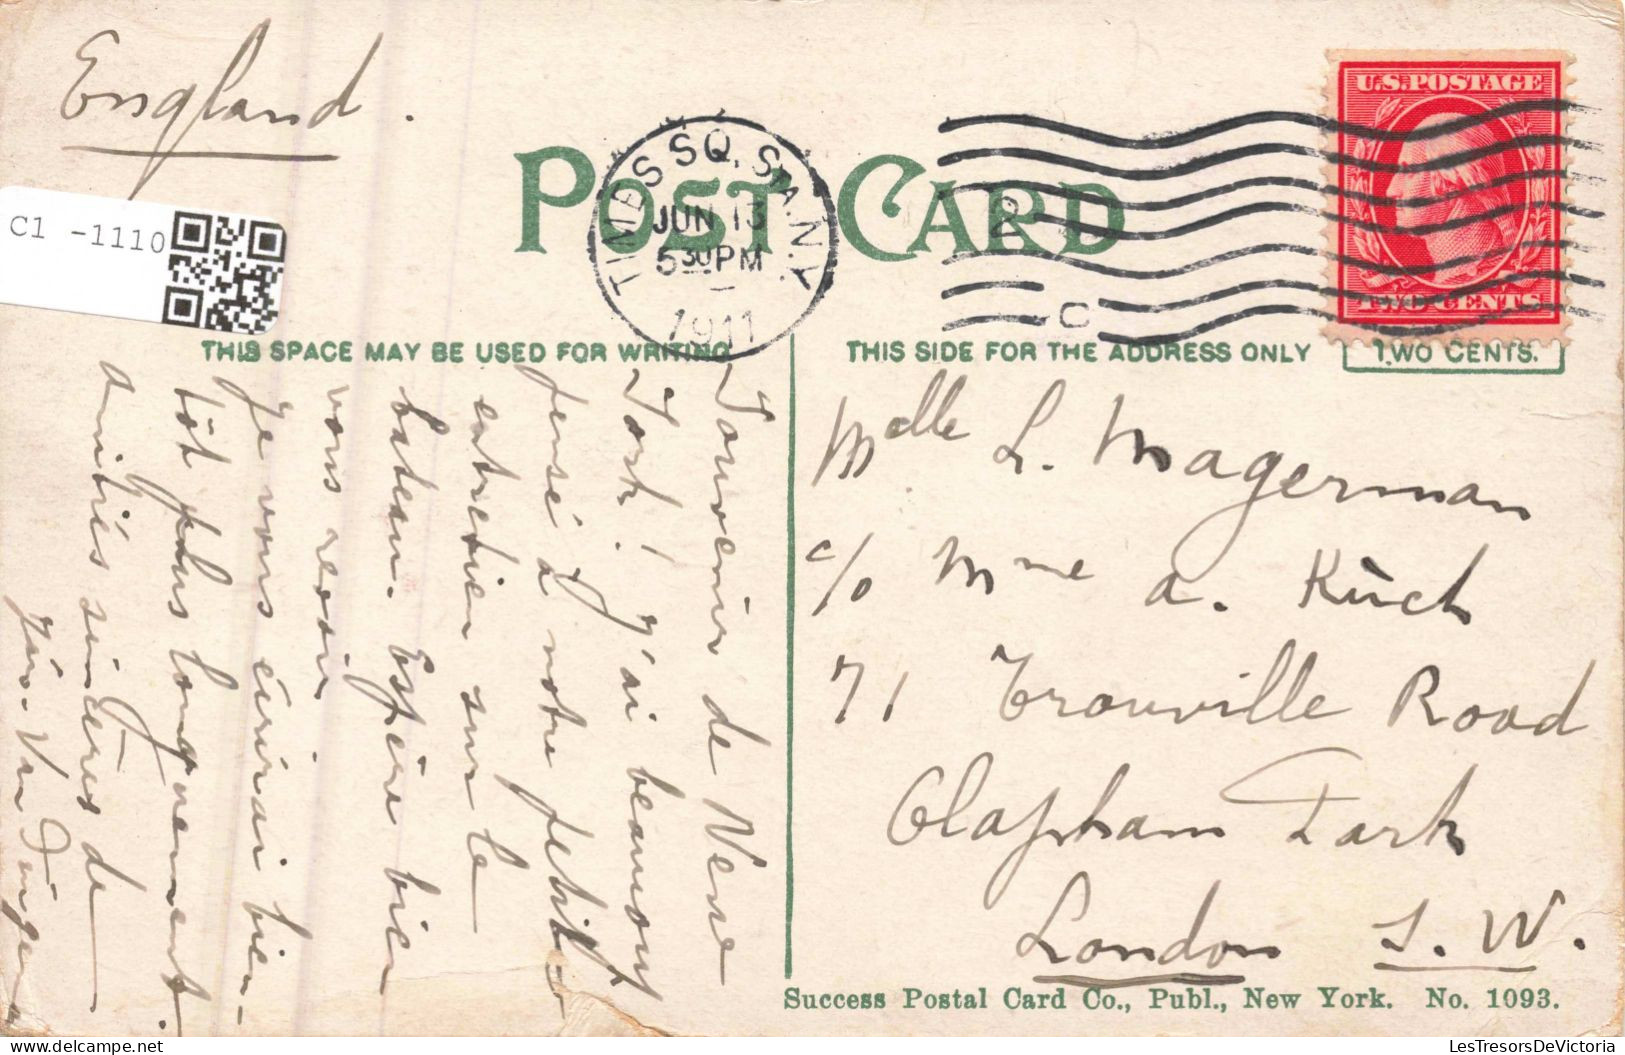 England.
C1 -1110
POST CARD
TIMES SQ. STA. N.Y.
JUN 13
5 30 PM
1911
C
U.S. POSTAGE
TWO CENTS
THIS SPACE MAY BE USED FOR WRITING
THIS SIDE FOR THE ADDRESS ONLY
TWO CENTS.
Souvenir de New
York! J'ai beaucoup
pensé à notre petit
entretien sur le
bateau. Espère bien
vous revoir.
Je vous écrirai bien-
tôt plus longuement.
amitiés sincères de
Van
Melle L. Magerman
c/o Mme A. Küch
71 Trouville Road
Clapham Park
London S.W.
Success Postal Card Co., Publ., New York. No. 1093.
LesTresorsDeVictoria